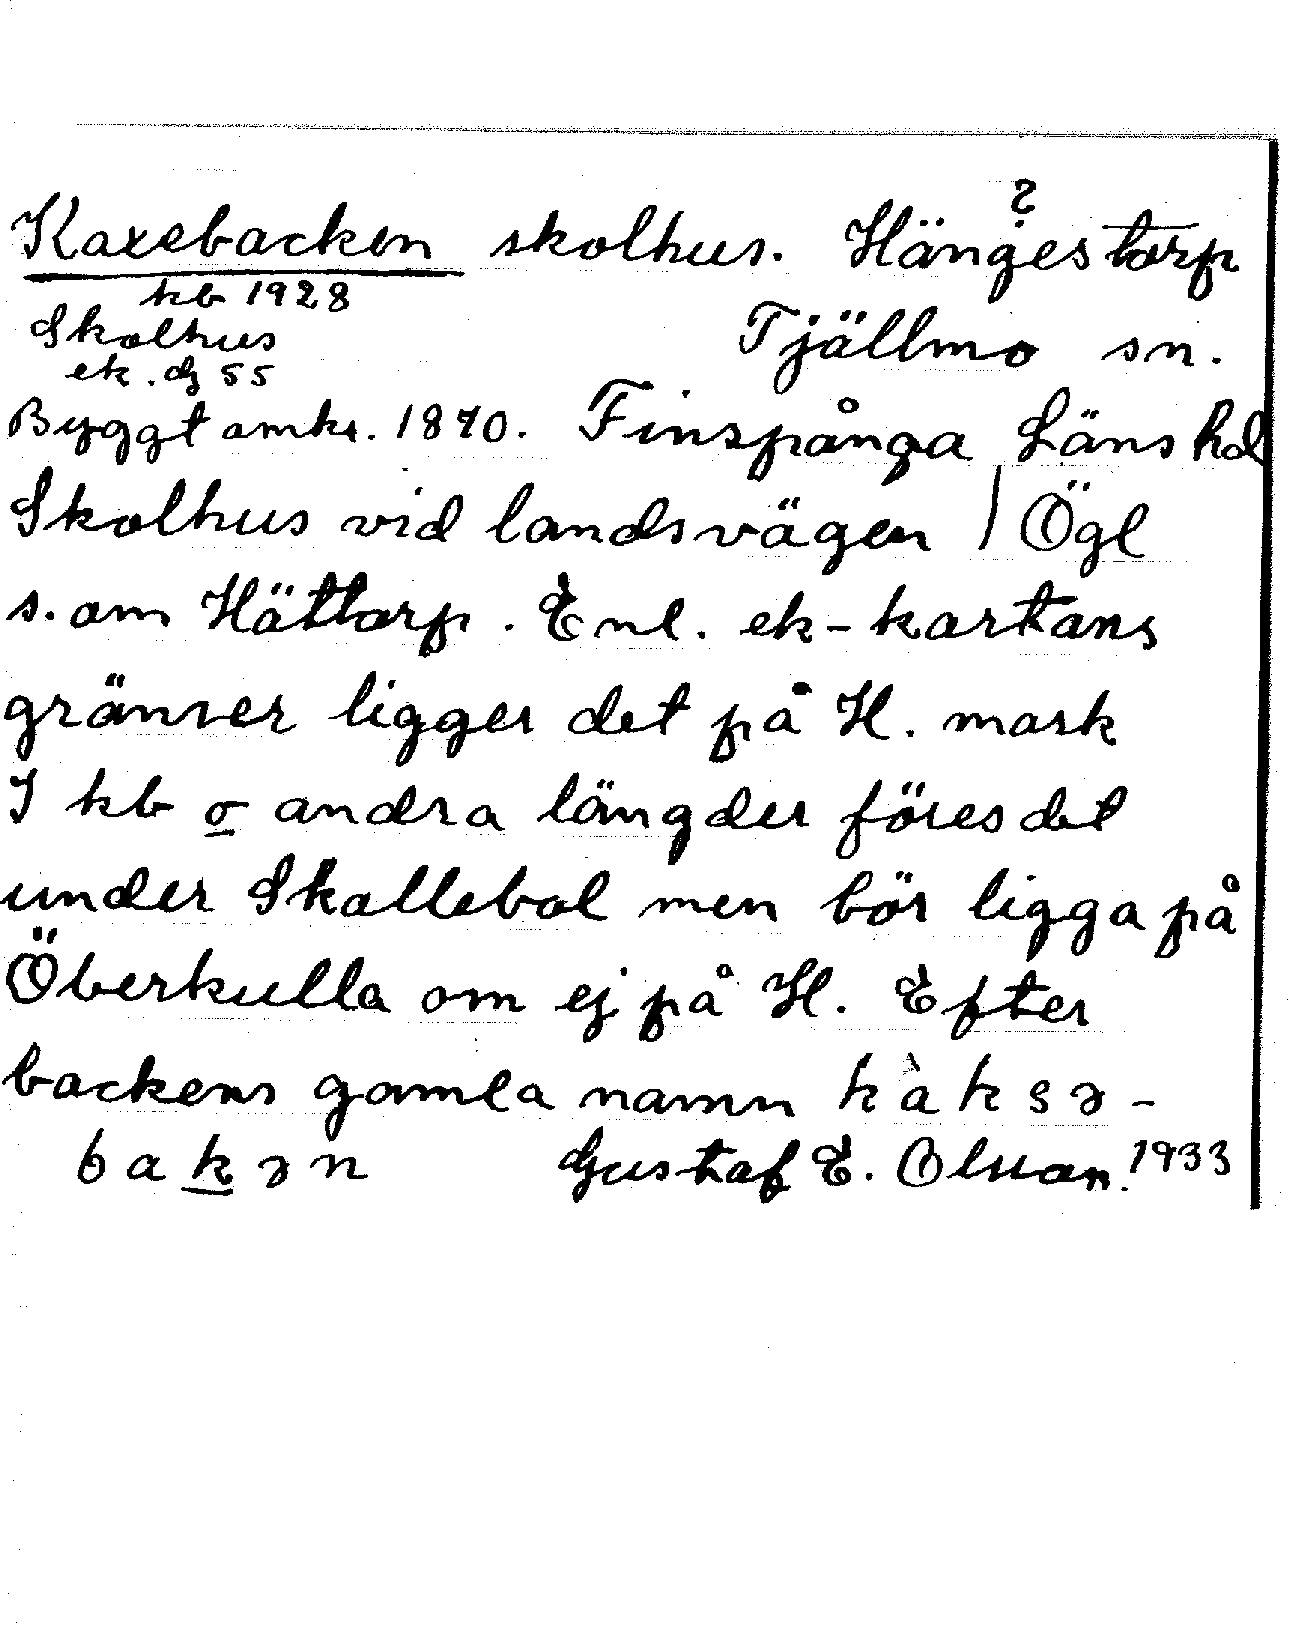 ?
Kaxebacken skolhus. Hängestorp
kb 1928
Skolhus
Tjällmo sn.
ek. dg 55
Byggt omkr. 1870. Finspånga Läns hd
Skolhus vid landsvägen / Ögl
s. om Hättorp. Enl. ek-kartans
gränser ligger det på H. mark
I kb o andra längder föres det
under Skallebol men bör ligga på
Överkulla om ej på H. Efter
backens gamla namn kàksə-
bakən Gustaf E. Olsson. 1933